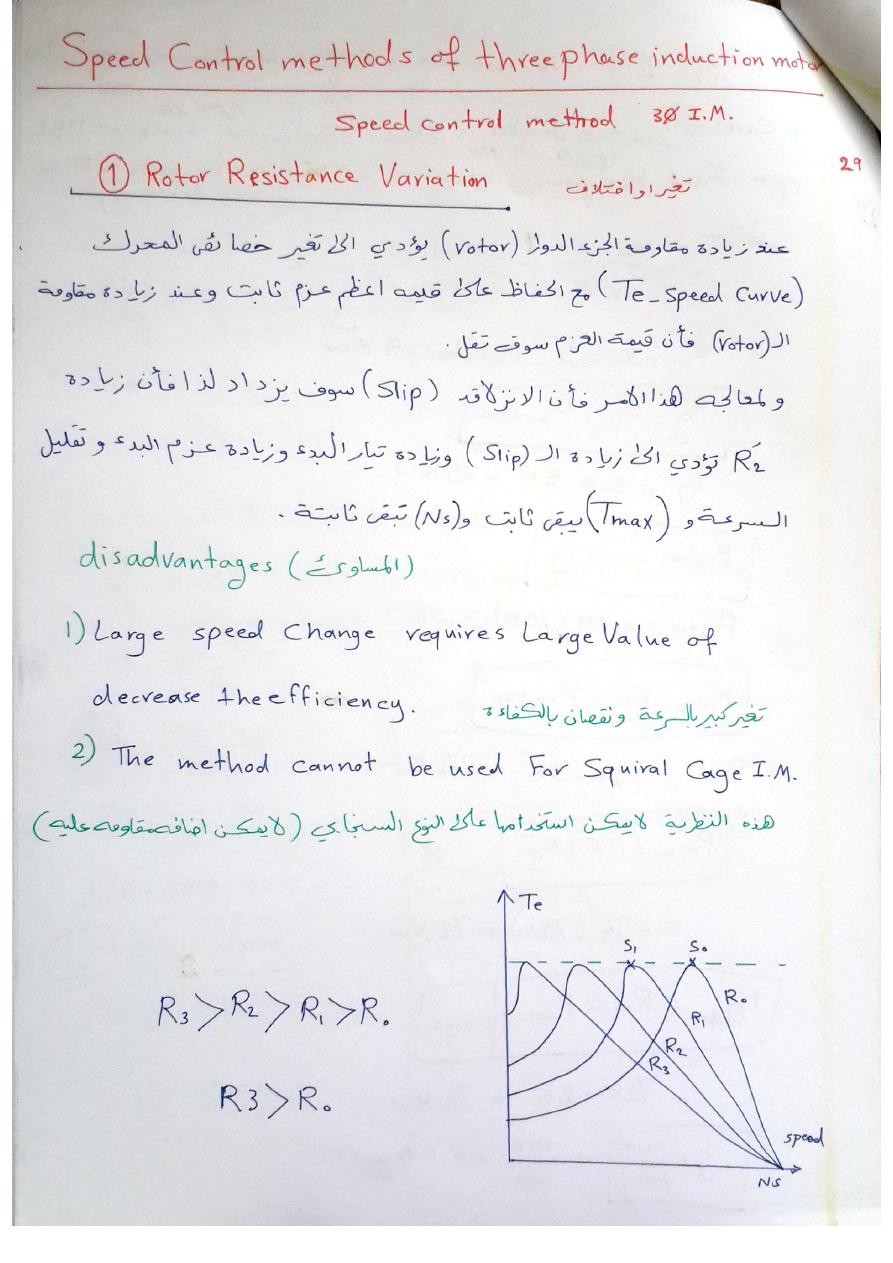 Speed Control methods of three phase induction motor
Speed control method 3Ø I.M.
29
① Rotor Resistance Variation تغير او اختلاف
عند زيادة مقاومة الجزء الدوار (rotor) يؤدي الى تغير خصائص المحرك
(Te_Speed Curve) مع الحفاظ على قيمه اعظم عزم ثابت وعند زيادة مقاومة
الـ(rotor) فأن قيمة العزم سوف تقل .
ولمعالجه هذا الامر فأن الانزلاق (Slip) سوف يزداد لذا فأن زيادة
R₂́ تؤدي الى زيادة الـ (Slip) وزيادة تيار البدء وزيادة عزم البدء و تقليل
السرعة و (Tmax) يبقى ثابت و(Ns) تبقى ثابتة .
disadvantages (المساوئ)
1) Large speed Change requires Large Value of
decrease the efficiency. تغير كبير بالسرعة ونقصان بالكفاءة
2) The method cannot be used For Squiral Cage I.M.
هذه النظرية لايمكن استخدامها على النوع السنجابي (لايمكن اضافه مقاومه عليه)
Te
S₁ S₀
R₃ > R₂ > R₁ > R₀
R₀
R₁
R₂
R₃
R3 > R₀
speed
Ns